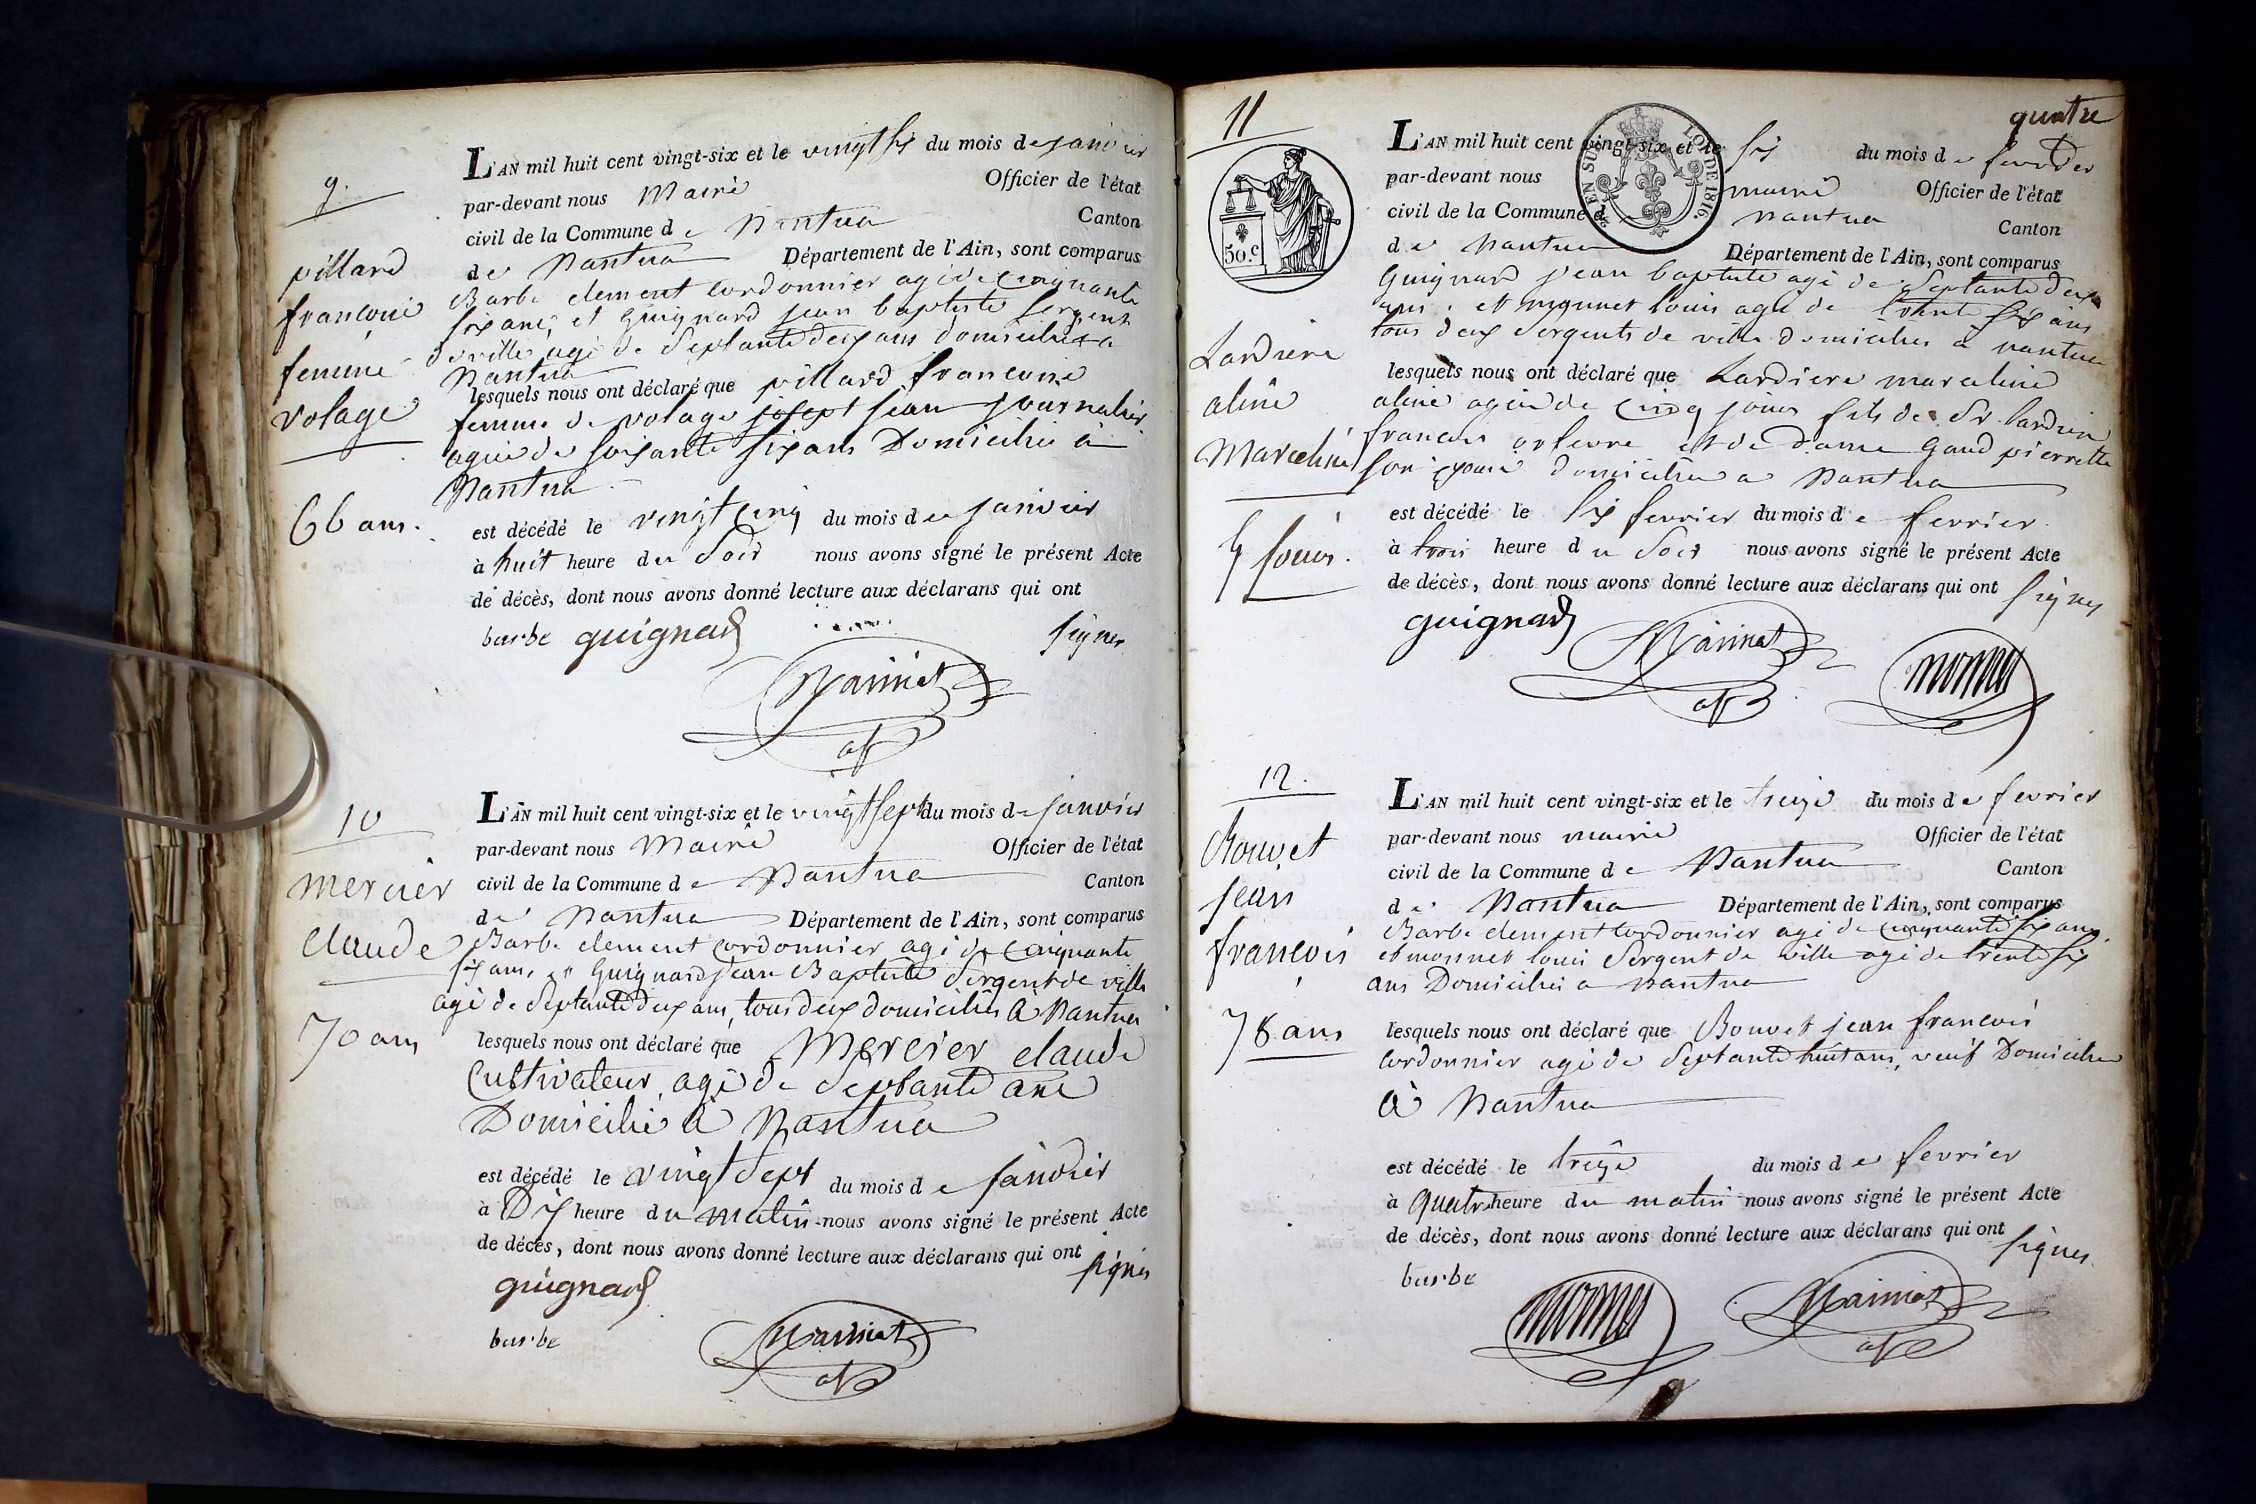 9.
villard
francoise
femme
volage
66 ans.
L'AN mil huit cent vingt-six et le vingt six du mois de janvier
par-devant nous Maire Officier de l'état
civil de la Commune de Nantua Canton
de Nantua Département de l'Ain, sont comparus
Barbe clement cordonnier agé de cinquante
six ans, et Guignard jean baptiste sergent
de ville agé de septante deux ans domiciliés a
Nantua
lesquels nous ont déclaré que villard francoise
femme de volage joseph jean journalier
agée de soixante six ans Domiciliée à
Nantua
est décédé le vingt cinq du mois de janvier
à huit heure du soir nous avons signé le présent Acte
de décès, dont nous avons donné lecture aux déclarans qui ont
signés
barbe guignard
10
mercier
claude
70 ans
L'AN mil huit cent vingt-six et le vingt sept du mois de janvier
par-devant nous Maire Officier de l'état
civil de la Commune de Nantua Canton
de Nantua Département de l'Ain, sont comparus
Barbe clement cordonnier agé de cinquante
six ans, et Guignard jean Baptiste sergent de ville
agé de septante deux ans, tous deux domiciliés à Nantua
lesquels nous ont déclaré que Mercier claude
Cultivateur, agé de septante ans
Domicilié à Nantua
est décédé le vingt sept du mois de janvier
à Dix heure du matin nous avons signé le présent Acte
de décès, dont nous avons donné lecture aux déclarans qui ont
signés
guignard
barbe
quatre
11
50.c
EN SUS
LOI DE 1816.
Lardiere
aline
Marceline
5 jours.
L'AN mil huit cent vingt-six et le six du mois de fevrier
par-devant nous maire Officier de l'état
civil de la Commune de Nantua Canton
de Nantua Département de l'Ain, sont comparus
Guignard jean baptiste agé de septante deux
ans, et monnet louis agé de trente six ans
tous deux sergents de ville domiciliés a nantua
lesquels nous ont déclaré que Lardiere marceline
aline agée de cinq jours fils de Sr lardiere
francois orfevre et de dame Gaud pierrette
son epouse domiciliés a Nantua
est décédé le six fevrier du mois de fevrier
à trois heure du soir nous avons signé le présent Acte
de décès, dont nous avons donné lecture aux déclarans qui ont
signés
guignard
12.
Bouvet
jean
francois
78 ans
L'AN mil huit cent vingt-six et le treize du mois de fevrier
par-devant nous maire Officier de l'état
civil de la Commune de Nantua Canton
de Nantua Département de l'Ain, sont comparus
Barbe clement cordonnier agé de cinquante six ans,
et monnet louis sergent de ville agé de trente six
ans Domiciliés a nantua
lesquels nous ont déclaré que Bouvet jean francois
cordonnier agé de septante huit ans, veuf Domicilié
à Nantua
est décédé le treize du mois de fevrier
à quatre heure du matin nous avons signé le présent Acte
de décès, dont nous avons donné lecture aux déclarans qui ont
signés
barbe